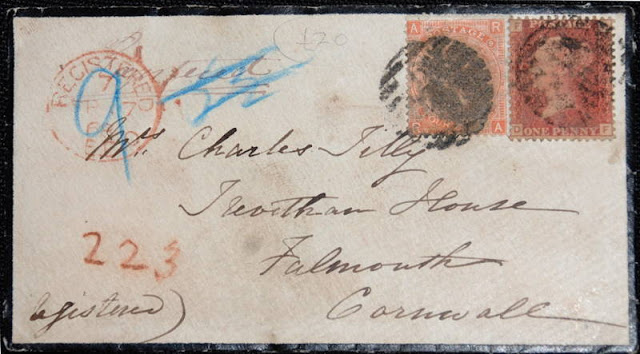 £20
Registered
A R
POSTAGE
R A
ONE PENNY
F
REGISTERED
7
9
Mrs Charles Tilly
Trevethan House
223
Falmouth
Registered)
Cornwall